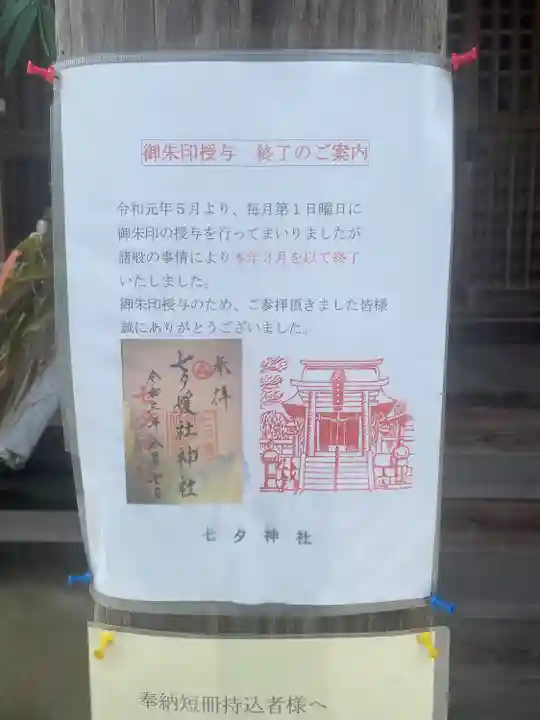 御朱印授与　終了のご案内
令和元年５月より、毎月第１日曜日に
御朱印の授与を行ってまいりましたが
諸般の事情により本年３月を以て終了
いたしました。
御朱印授与のため、ご参拝頂きました皆様
誠にありがとうございました。
奉拝
七夕媛社神社
令和三年八月七日
七夕神社
奉納短冊持込者様へ